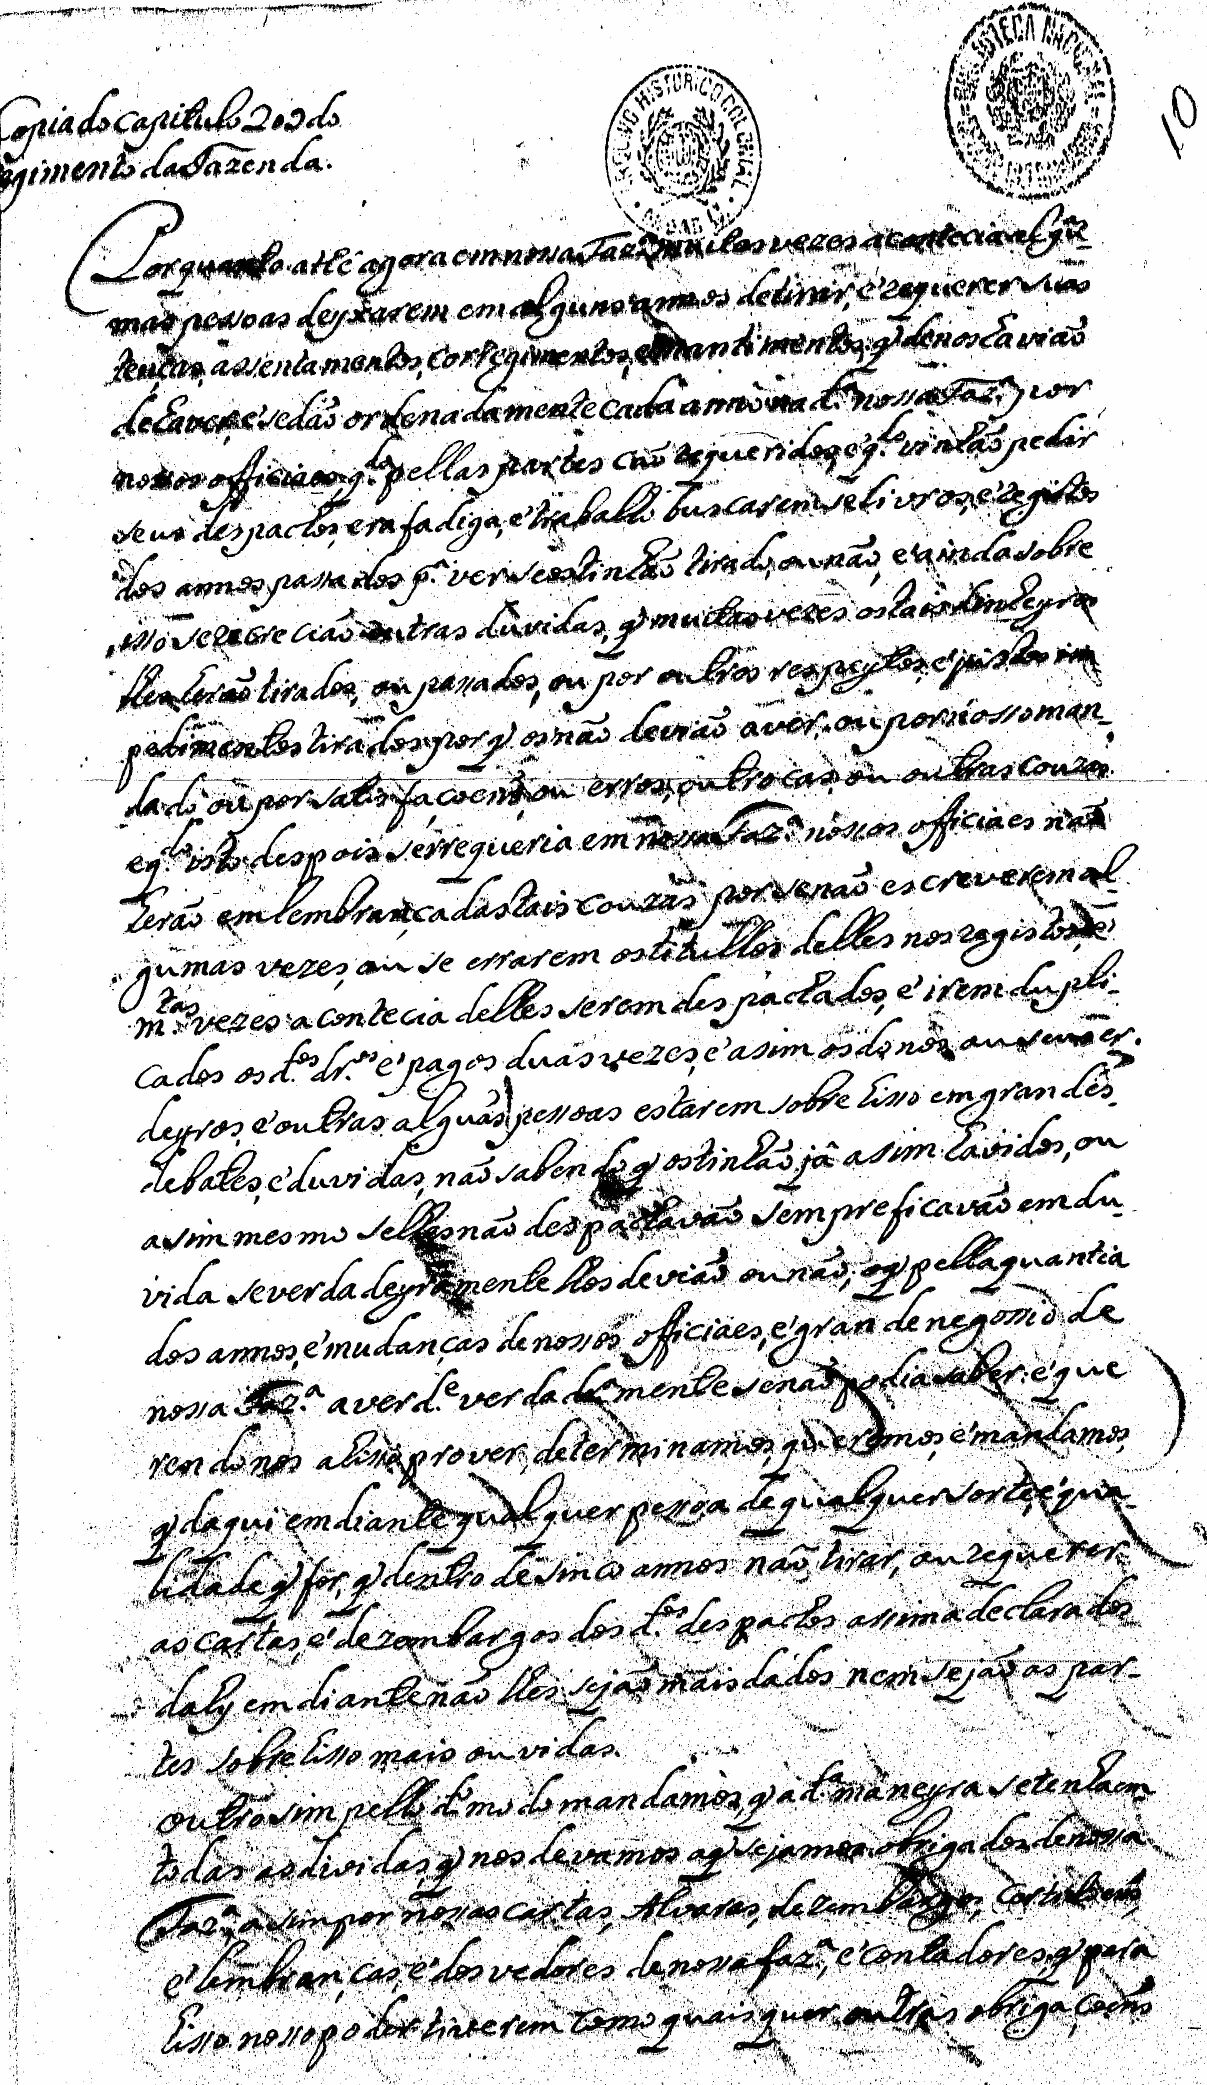 Copia do capitulo 209 do
Regimento da Fazenda.
10
BIBLIOTECA NACIONAL
ARCHIVO HISTORICO COLONIAL
Porquanto athé agora em nossa Faz.ª muitas vezes acontecia algũ
mas pessoas deyxarem em alguns annos detirar, e requerer suas
tenças, assentamentos, corregimentos, e mantimentos, q̃ denos havião
dehaver, e sedão ordenadamente cada anno na d.ª nossa Faz.ª por
nossos officiaes q.do pellas partes são requeridos, e q.do vinhão pedir
seus despachos, era fadiga, e trabalho buscaremse livros, e registos
dos annos passados p.ª ver se os tinhão tirado, ou não, e ainda sobre
isso serecrecião outras duvidas, q̃ muitas vezes os tais dinheyros
lhe herão tirados, ou passados, ou por outros respeytos, e justos im
pedimentos tirados, por q̃ os não devião aver, ou por nosso man-
dado ou por satisfaçoens, ou erros, ou trocas, ou outras couzas
eq.do isto despois serrequeria em nossa Faz.ª nossos officiaes não
herão em lembrança das tais couzas por se não escreverem al-
gumas vezes, ou se errarem os titullos delles nos registos, e
m.tas vezes acontecia delles serem despachados, e irem dupli-
cados os d.tos dr.os e pagos duas vezes, e asim os donos, ou seus er-
deyros, e outras alguãs pessoas estarem sobre hisso em grandes
debates, e duvidas, não sabendo q̃ os tinhão já asim havidos, ou
asim mesmo selhes não despachavão sempre ficavão em du-
vida se verdadeyramente lhos devião ou não, oq̃ pella quantia
dos annos, e mudanças de nossos officiaes, e grande negossio de
nossa Faz.ª a verd.e verdadr.ª mente se não podia saber: e que
rendo nos a hisso prover, determinamos, queremos, e mandamos,
q̃ daqui em diante qualquer pessoa de qualquer sorte, e qua-
lidade q̃ for, q̃ dentro de sinco annos não tirar, ou requerer
as cartas, e dezembargos dos d.tos despachos assima declarados
dahy em diante não lhes sejão mais dados nem sejão as par-
tes sobre hisso mais ouvidas.
outrosim pello d.º modo mandamos, q̃ a d.ª maneyra se tenha em
todas as dividas, q̃ nos devamos aq̃ sejamos obrigados de nossa
Faz.ª asim por nossas cartas, Alvaras, dezembargos,
e lembranças, e dos vedores de nossa faz.ª, e contadores, q̃ para
hisso nosso poder tiverem como quaisquer outras obrigaçoens